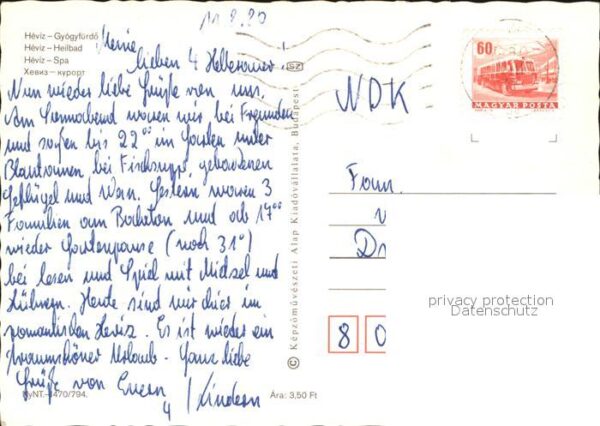 11.8.80
Hévíz – Gyógyfürdő
Hévíz – Heilbad
Hévíz – Spa
Хевиз – курорт
Meine
lieben 4
Nun wieder liebe Grüße von uns.
Am Sonnabend waren wir bei Freunden
und saßen bis 22⁰⁰ im Garten unter
Blautannen bei Fischsuppe, gebackenen
Geflügel und Wein. Gestern waren 3
Familien am Balaton und ab 17⁰⁰
wieder Gartenpause (noch 31°)
bei lesen und Spiel mit und
Hühnern. Heute sind wir hier im
romantischen Heviz. Es ist wieder ein
traumschöner Urlaub. Ganz liebe
Grüße von Euern
4 Kindern
NyNT.–1470/794.
Ára: 3,50 Ft
© Képzőművészeti Alap Kiadóvállalata, Budapest
SZ
60f
MAGYAR POSTA
NDK
Fam.
Dr
8 0
privacy protection
Datenschutz